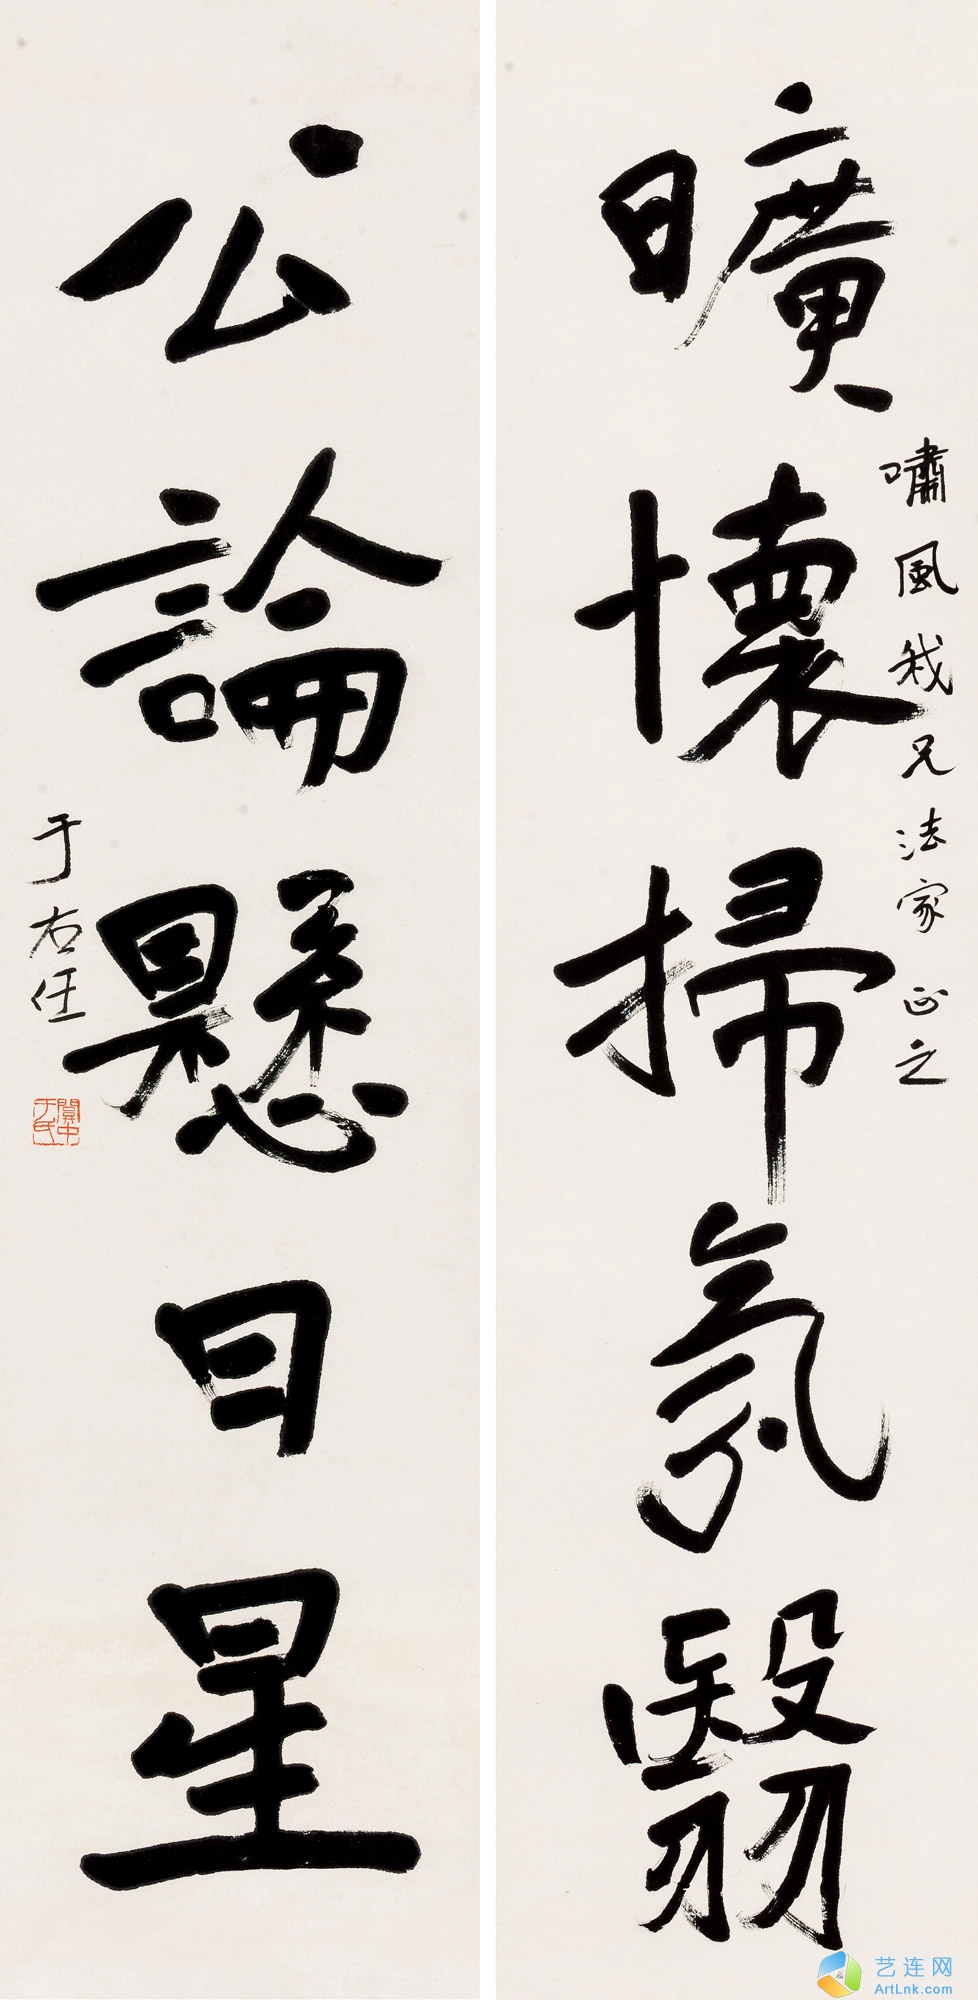 曠懷掃氛翳
嘯風我兄法家正之
公論懸日星
于右任
關中于氏
艺连网
ArtLnk.com